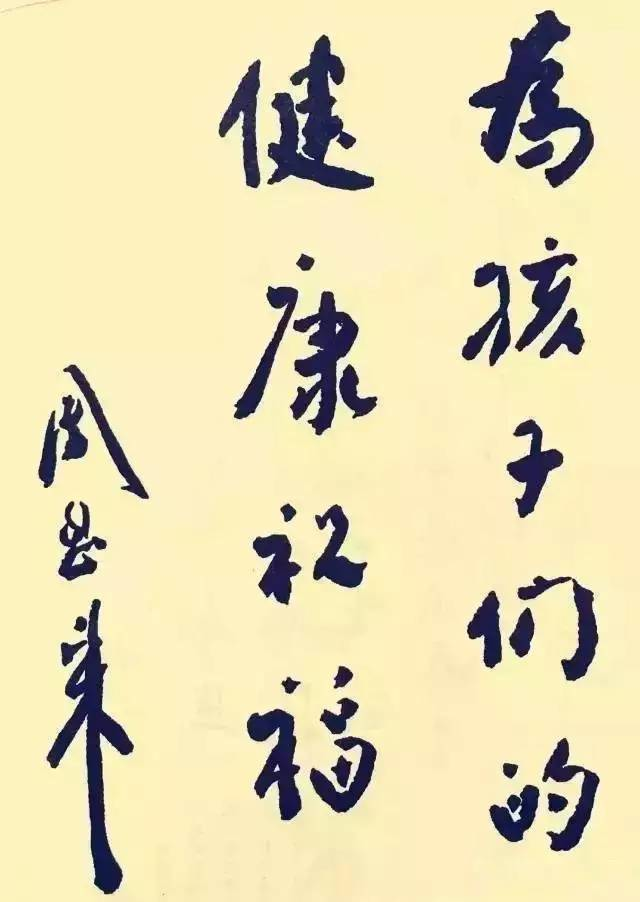 為孩子们的
健康祝福
周恩来